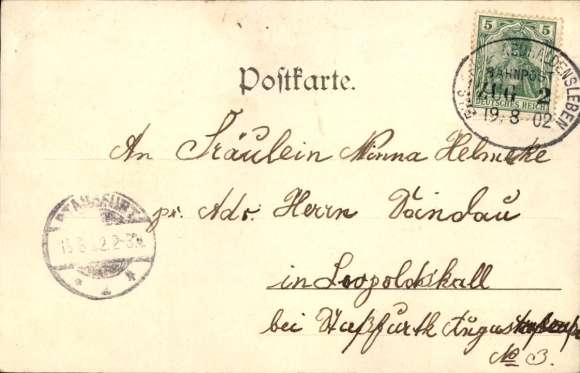 Postkarte.
5
DEUTSCHES REICH
NEUHALDENSLEBEN
BAHNPOST
ZUG 2
19. 8 02
STASSFURT
2-3N
An Fräulein Minna Helmeke
pr. Adr. Herrn Dandau
in Leopoldshall
bei Staßfurth August
No 3.